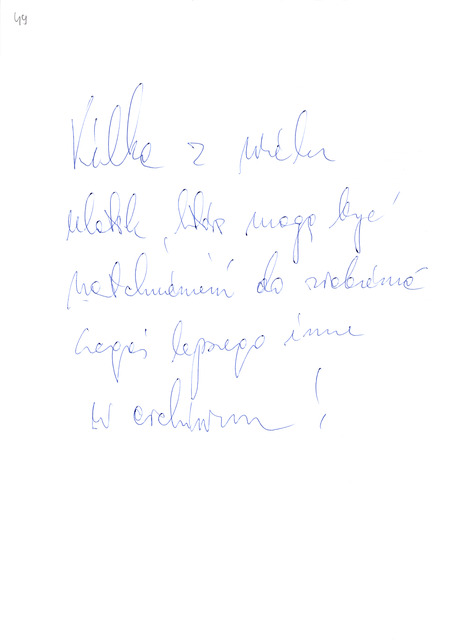 44
Kilka z wielu
ulotek, które mogą być
natchnieniem do zrobienia
czegoś lepszego inne
w archiwum!